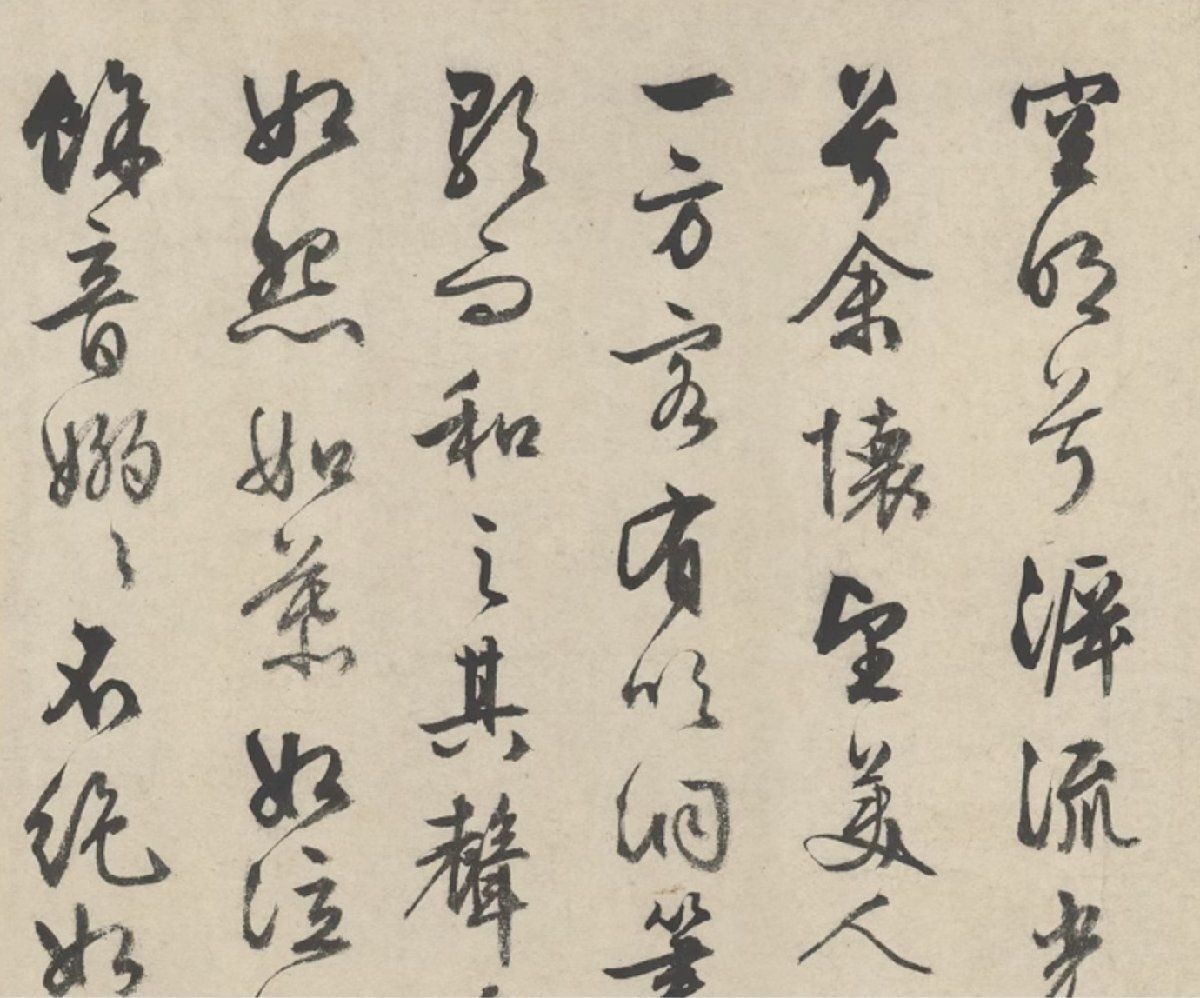 空明兮溯流光
兮余懷望美人
一方客有吹洞簫
歌而和之其聲
如怨如慕如泣
餘音嫋〻不絕如